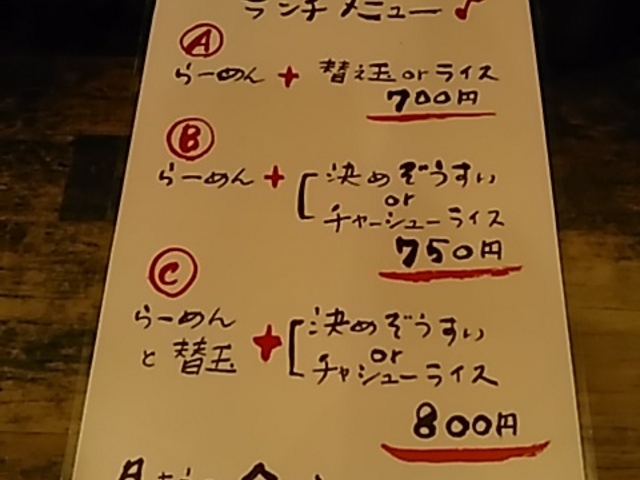 ランチメニュー♪
A
らーめん + 替え玉 or ライス
700円
B
らーめん + 決めぞうすい
or
チャーシューライス
750円
C
らーめん
と替玉 + 決めぞうすい
or
チャシューライス
800円